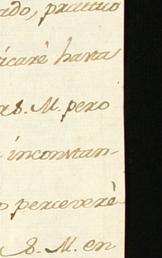 ado, practico
icaré hasta
as. M. pero
inconstan-
o perceveré
S. M. en